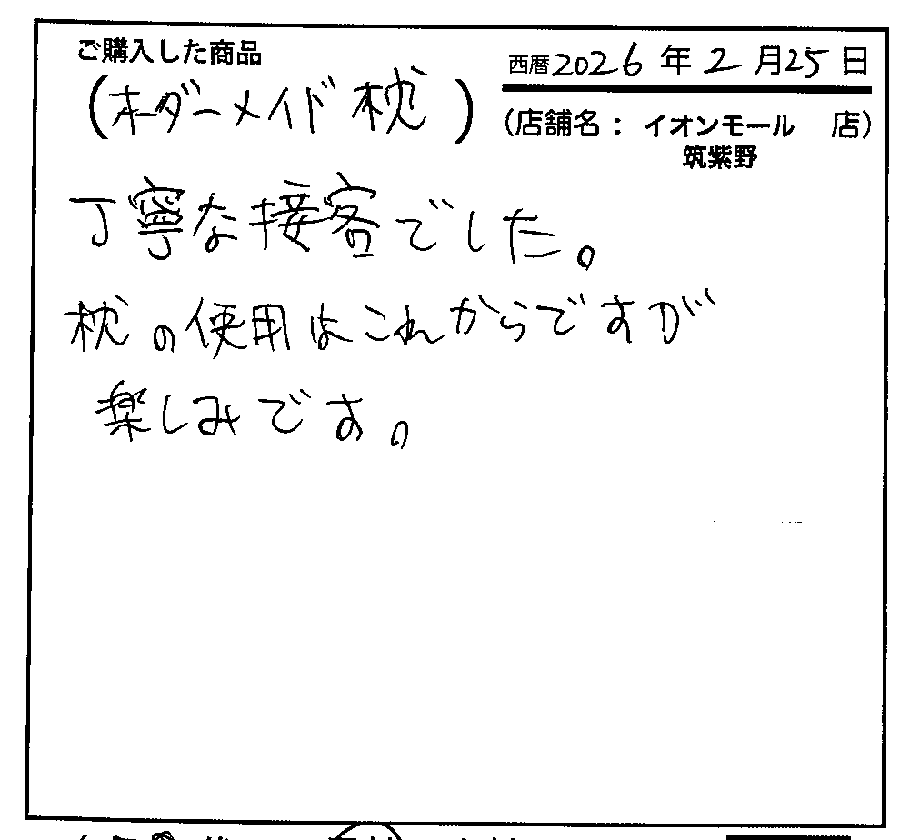 ご購入した商品
西暦2026年2月25日
(オーダーメイド枕)
(店舗名：イオンモール 店)
筑紫野
丁寧な接客でした。
枕の使用はこれからですが
楽しみです。